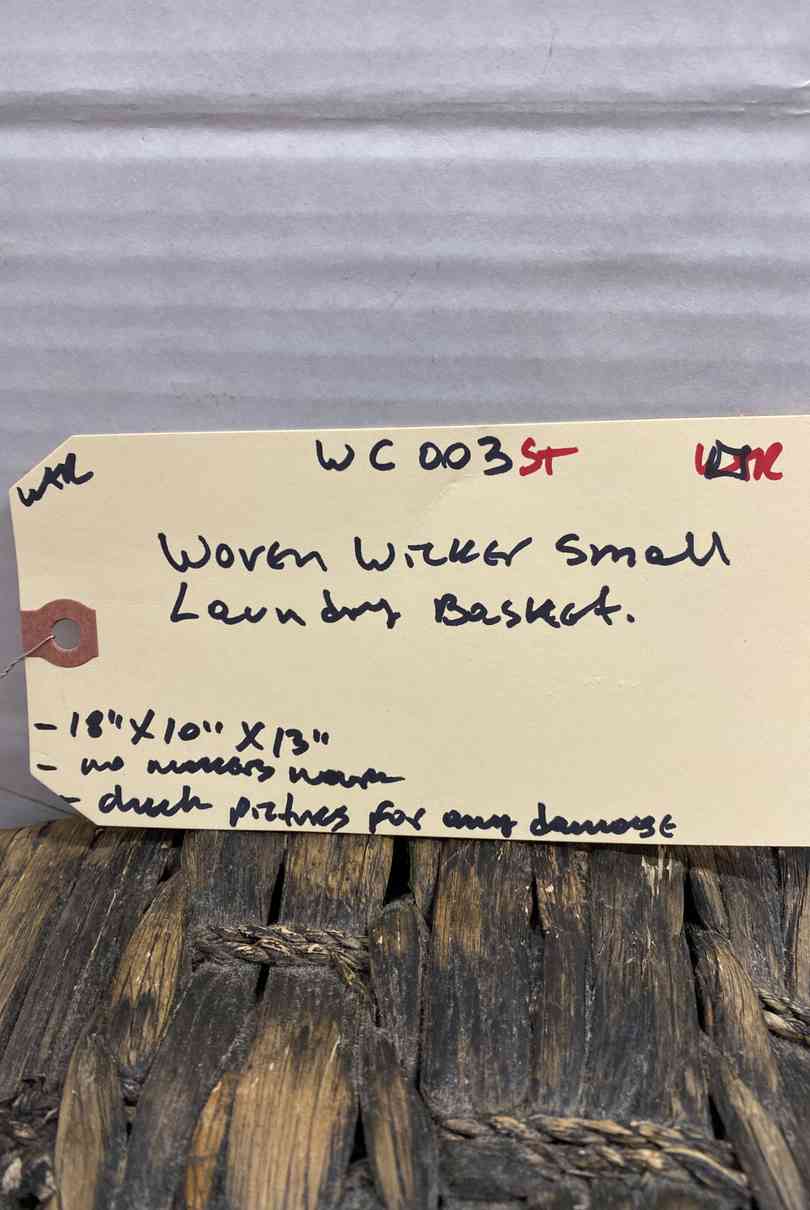 WAR WC 003 ST
Woven Wicker Small
Laundry Basket.
- 18" X 10" X 13"
- no makers mark
- check pictures for any damage